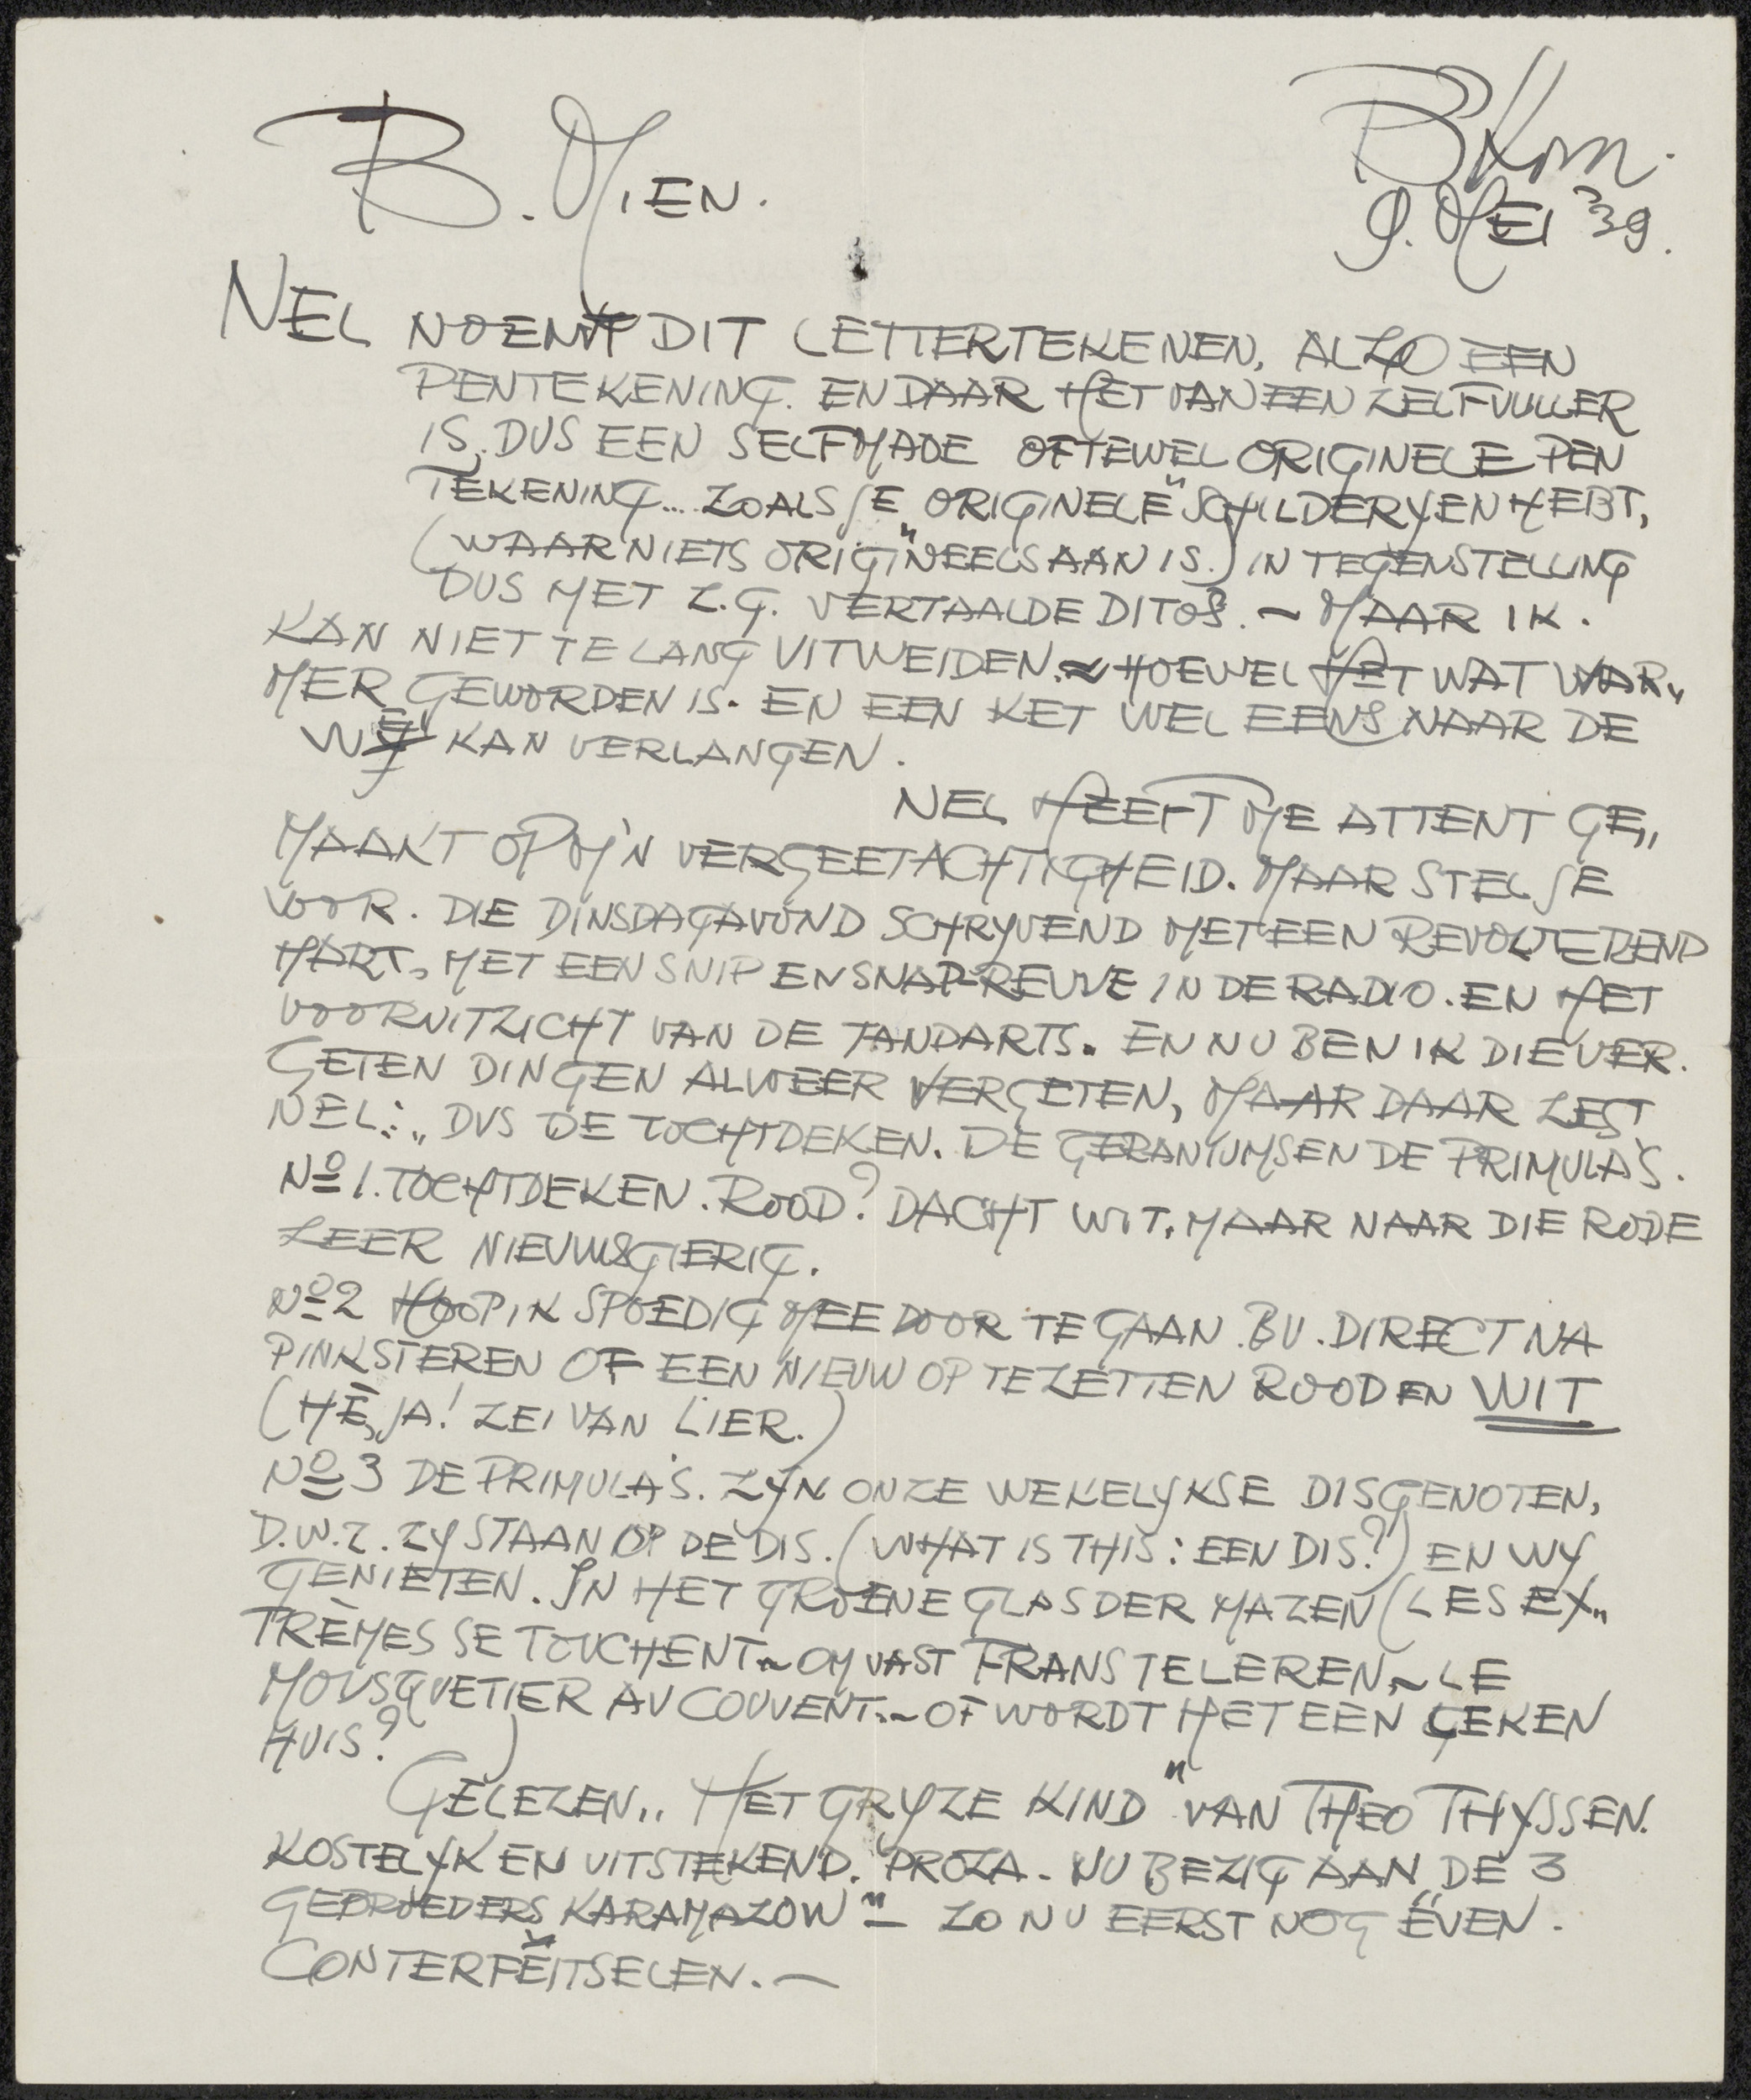 B. MIEN.
BKum.
9. MEI '39.
NEL NOEMT DIT LETTERTEKENEN, ALZO EEN
PENTEKENING. EN DAAR HET VAN EEN ZELFVULLER
IS, DUS EEN SELFMADE OFTEWEL ORIGINELE PEN
TEKENING... ZOALS JE „ORIGINELE" SCHILDERYEN HEBT,
(WAAR NIETS ORIGINEELS AAN IS.) IN TEGENSTELLING
DUS MET Z.G. VERTAALDE DITO'S. ~ MAAR IK.
KAN NIET TE LANG UITWEIDEN. ~ HOEWEL HET WAT WAR„
MER GEWORDEN IS. EN EEN KET WEL EENS NAAR DE
WEI KAN VERLANGEN.
NEL HEEFT ME ATTENT GE„
MAAKT OP M'N VERGEETACHTIGHEID. MAAR STEL JE
VOOR. DIE DINSDAGAVOND SCHRYVEND MET EEN REVOLTEREND
HART, MET EEN SNIP EN SNAP-REVUE IN DE RADIO. EN HET
VOORUITZICHT VAN DE TANDARTS. EN NU BEN IK DIE VER.
GETEN DINGEN ALWEER VERGETEN, MAAR DAAR ZEGT
NEL: „DUS DE TOCHTDEKEN. DE GERANIUMS EN DE PRIMULA'S.
No 1. TOCHTDEKEN. ROOD? DACHT WIT. MAAR NAAR DIE RODE
ZEER NIEUWSGIERIG.
No 2 HOOP IK SPOEDIG MEE DOOR TE GAAN. BV. DIRECT NA
PINKSTEREN OF EEN NIEUW OP TE ZETTEN ROOD EN WIT
(HÈ, JA! ZEI VAN LIER.)
No 3 DE PRIMULA'S. ZYN ONZE WEKELYKSE DISGENOTEN,
D.W.Z. ZY STAAN OP DE DIS. (WHAT IS THIS: EEN DIS?) EN WY
GENIETEN. IN HET GROENE GLAS DER MAZEN (LES EX„
TRÈMES SE TOUCHENT ~ OM VAST FRANS TE LEREN, ~ LE
MOUSQUETIER AU COUVENT. ~ OF WORDT HET EEN GEKEN
HUIS?)
GELEZEN „HET GRYZE KIND" VAN THEO THYSSEN.
KOSTELYK EN UITSTEKEND. PROZA. NU BEZIG AAN „DE 3
GEBROEDERS KARAMAZOW" – ZO NU EERST NOG ËVEN.
CONTERFEITSELEN. —